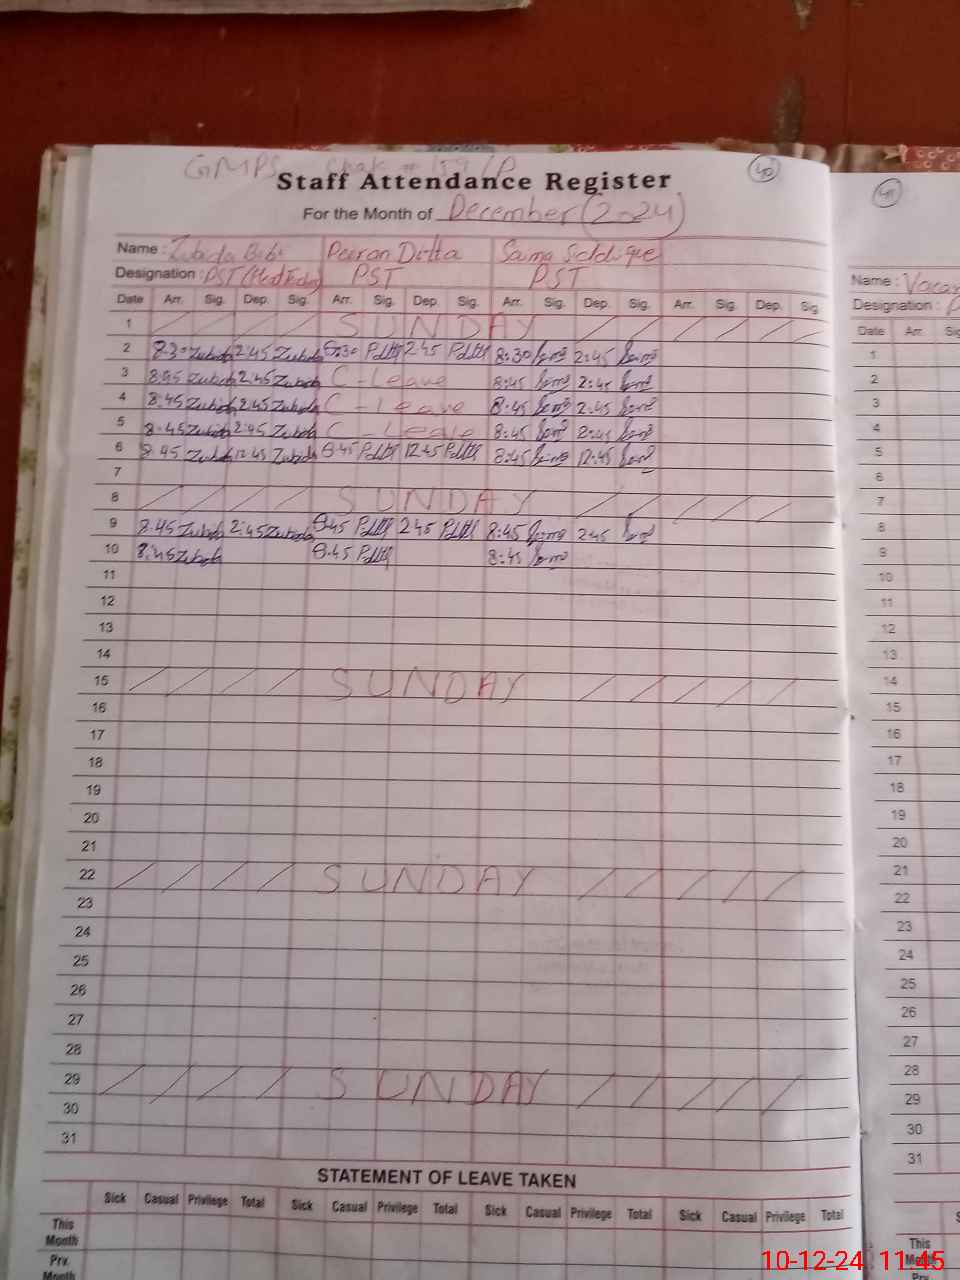 GMPS Chak # 159/P
Staff Attendance Register
40
For the Month of December (2024)
Name : Zubida Bibi Peeran Ditta Saima Siddique
Designation : PST (Head Teacher) PST PST
Date Arr. Sig. Dep. Sig. Arr. Sig. Dep. Sig. Arr. Sig. Dep. Sig. Arr. Sig. Dep. Sig.
1 SUNDAY
2 8:30 Zubida 2:45 Zubida 8:30 2:45 8:30 2:45
3 8:45 Zubida 2:45 Zubida C - Leave 8:45 2:45
4 8:45 Zubida 2:45 Zubida C - Leave 8:45 2:45
5 8:45 Zubida 2:45 Zubida C - Leave 8:45 2:45
6 8:45 Zubida 12:45 Zubida 8:45 12:45 8:45 12:45
7
8 SUNDAY
9 8:45 Zubida 2:45 Zubida 8:45 2:45 8:45 2:45
10 8:45 Zubida 8:45 8:45
11
12
13
14
15 SUNDAY
16
17
18
19
20
21
22 SUNDAY
23
24
25
26
27
28
29 SUNDAY
30
31
STATEMENT OF LEAVE TAKEN
Sick Casual Privilege Total Sick Casual Privilege Total Sick Casual Privilege Total Sick Casual Privilege Total
This
Month
Prv.
Month
41
Name :
Designation :
Date Arr.
1
2
3
4
5
6
7
8
9
10
11
12
13
14
15
16
17
18
19
20
21
22
23
24
25
26
27
28
29
30
31
This
Month
10-12-24 11:45